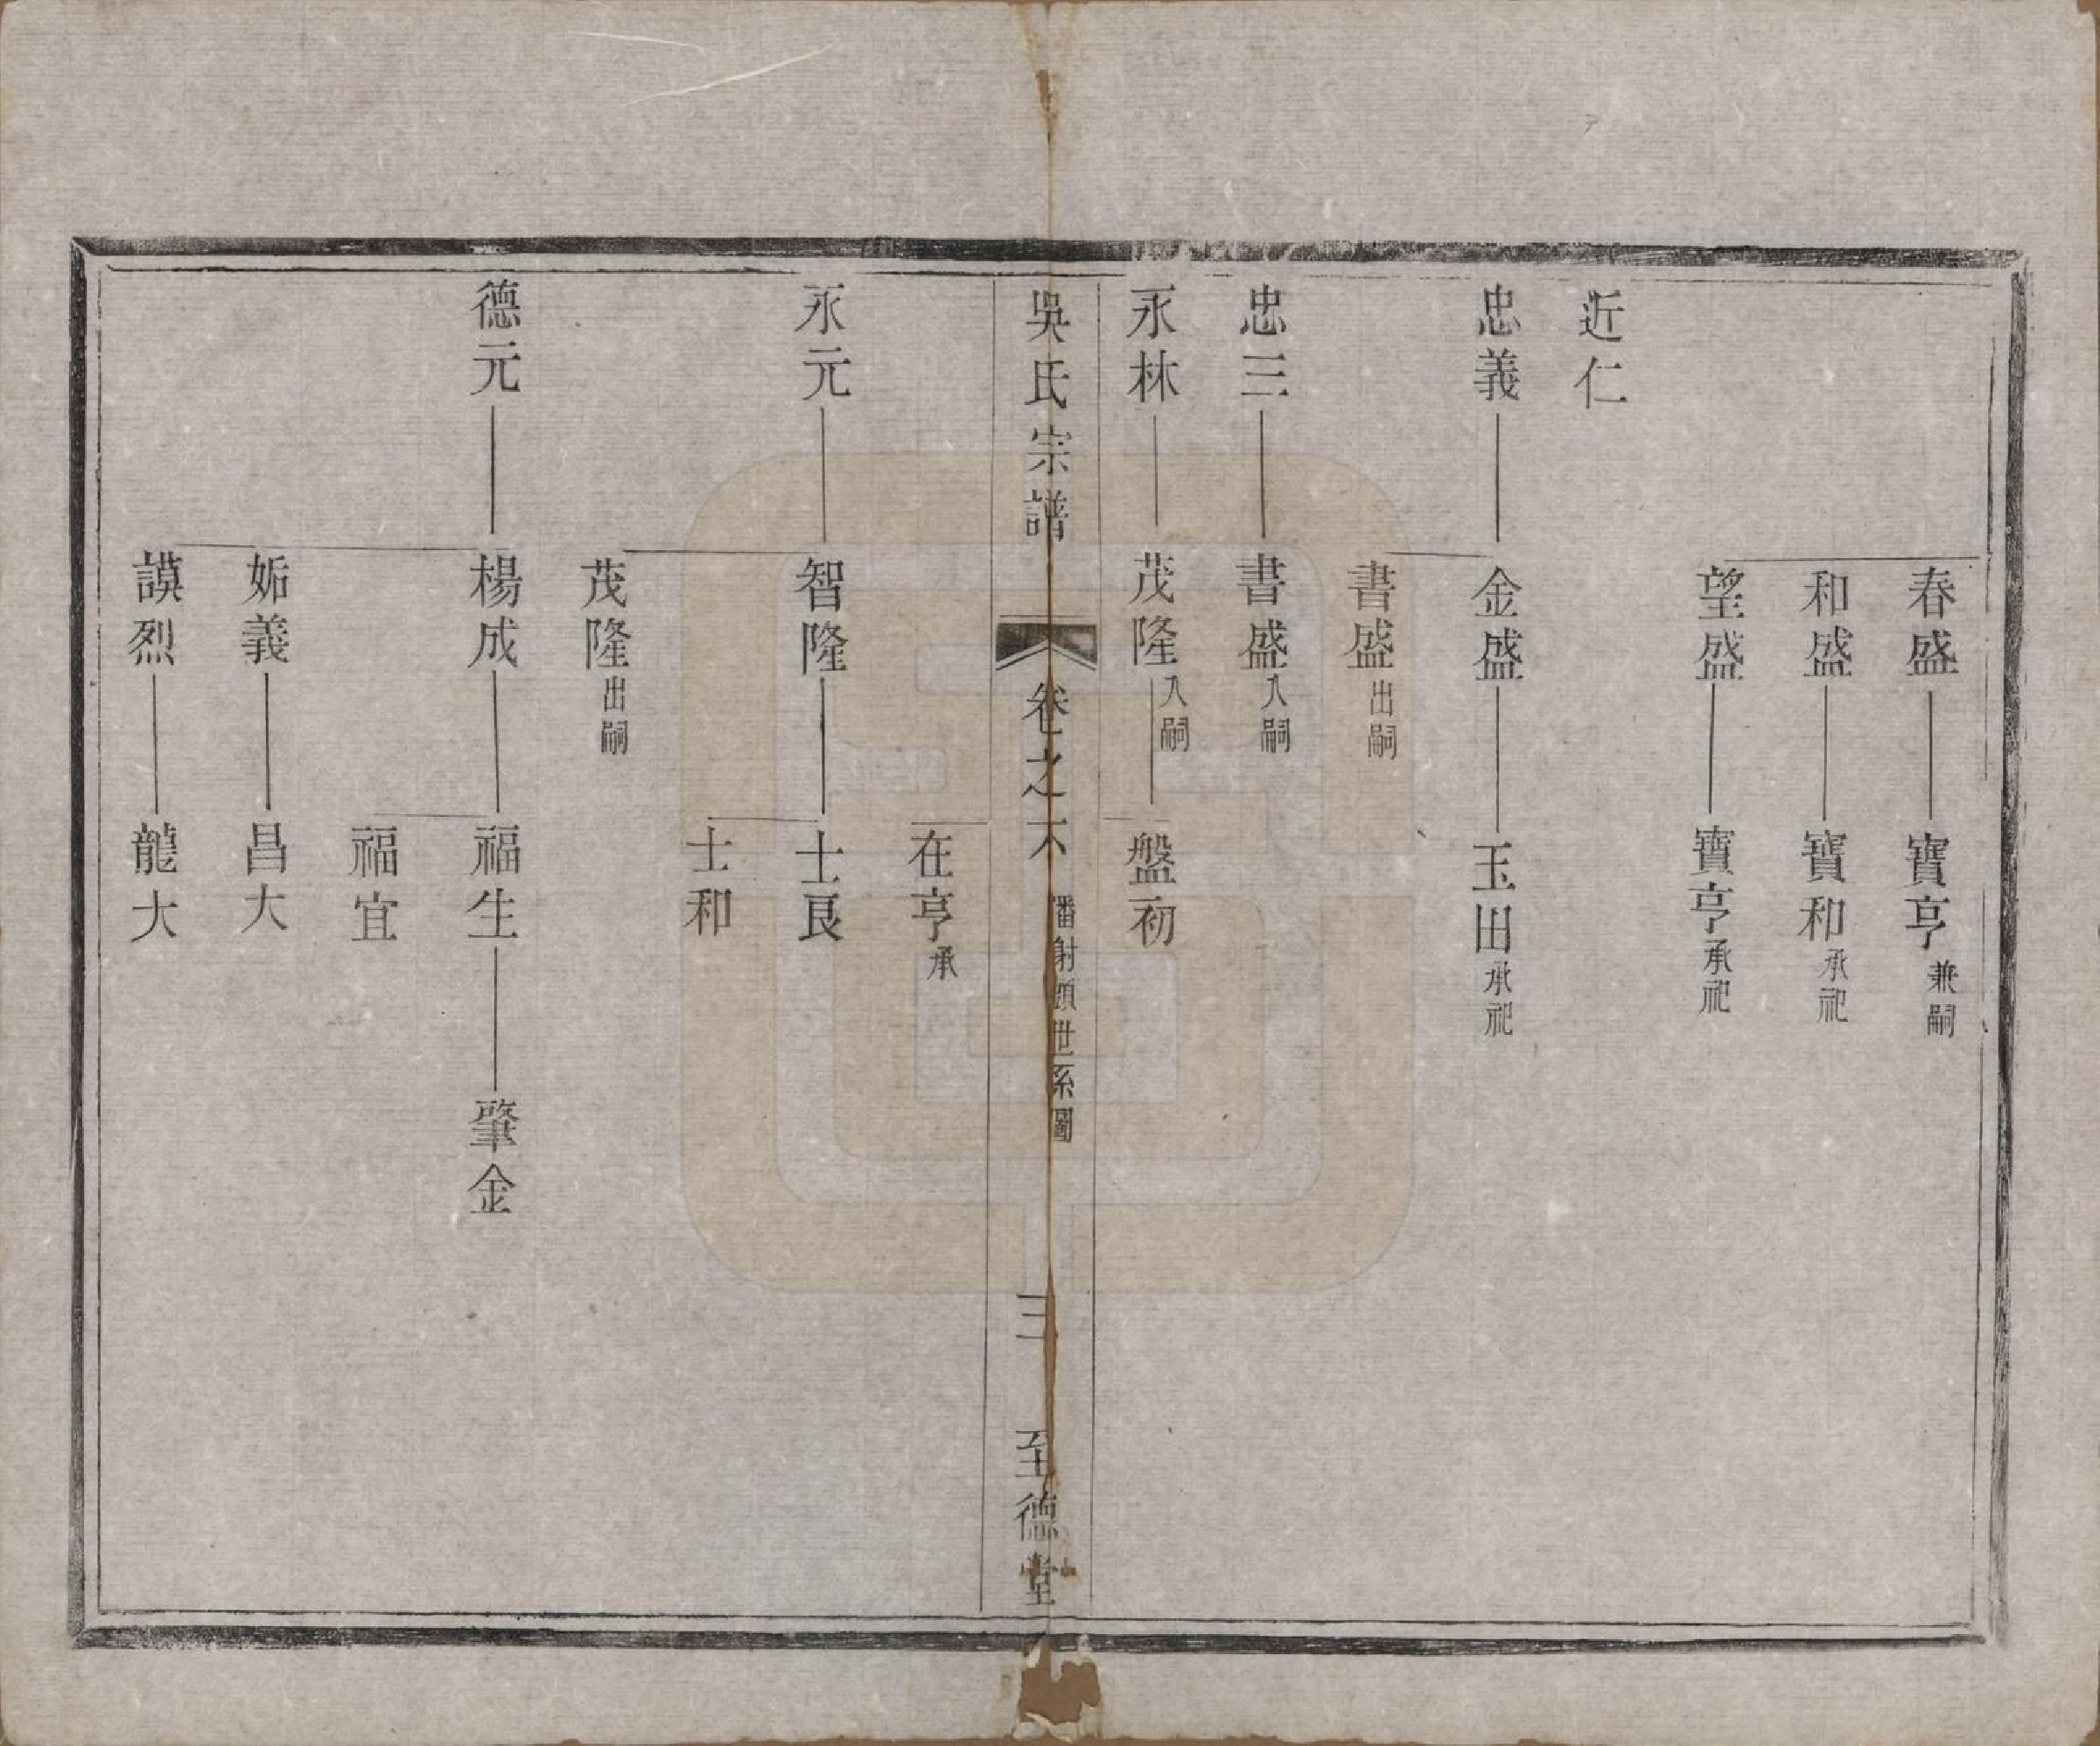 春盛 寶亨 兼嗣
和盛 寶和 承祀
望盛 寶亨 承祀
近仁
忠義 金盛 玉田 承祀
書盛 出嗣
忠三 書盛 入嗣
永林 茂隆 入嗣 盤初
吳氏宗譜 卷之六 潘射頭世系圖 三 至德堂
在亨 承
永元 智隆 士良
士和
茂隆 出嗣
德元 楊成 福生 肇金
福宜
妬義 昌大
謨烈 龍大